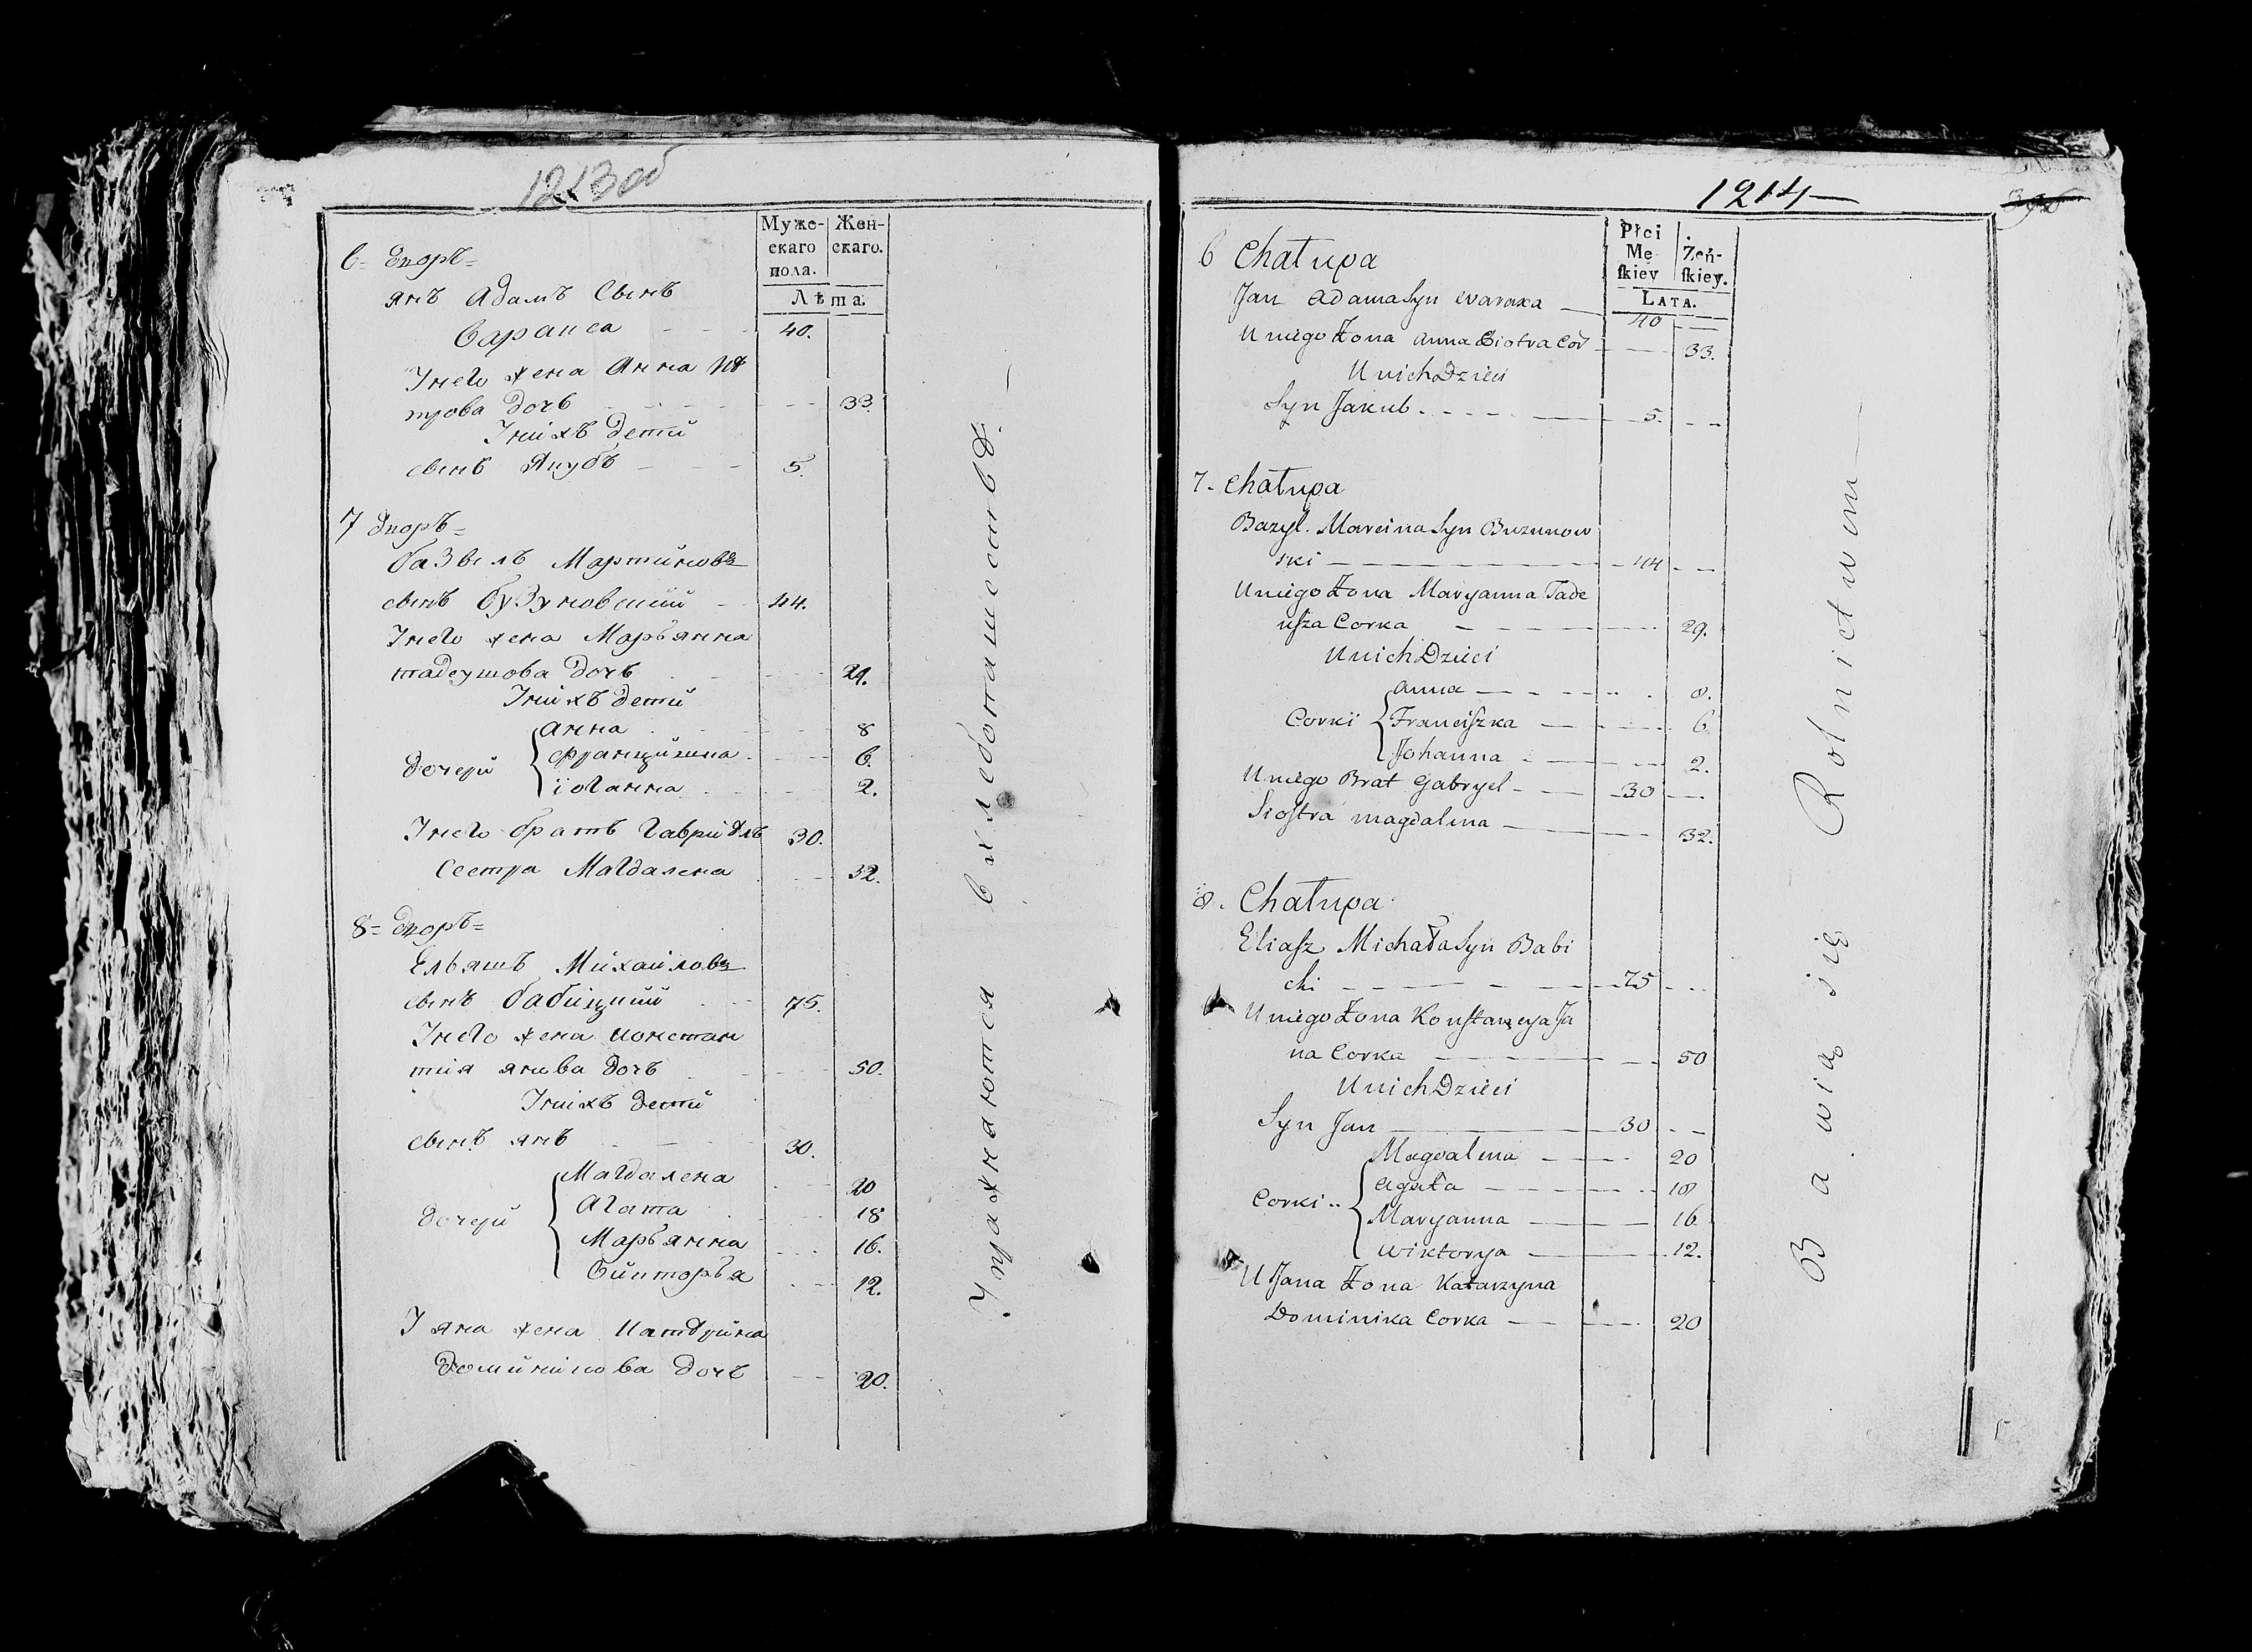 1213 об
Муже-
скаго
пола.
Жен-
скаго.
Лѣта.
6= дворъ=
янъ Адамъ Сынъ
Варакса 40.
Унего жена Анна Пѣ
трова дочь 33.
Унихъ дети
сынъ Якубъ 5.
7 дворъ=
базыль Мартиновъ
сынъ бузуновский 44.
Унего жена Марьянна
тадеушова дочь 29.
Унихъ дети
Анна 8
дочери францишка 6.
иоганна 2.
Унего братъ Гаврiѣль 30.
Сестра Магдалена 32.
8= дворъ=
Ельяшъ Михайловъ
сынъ бабицкий 75.
Унего жена констан
тия янова дочь 50.
Унихъ дети
сынъ янъ 30.
Магдалена 20
дочери Агата 18
Марьянна 16.
Викторья 12.
У яна жена Катѣрина
доминикова дочь 20.
Упражняются в хлебопашестве.
1214
396
Płci
Mę
ſkiey
Żeń-
ſkiey.
LATA.
6 Chałupa
Jan Adama Syn Waraxa 40
U niego Żona Anna Piotra Cor 33.
U nich Dzieci
Syn Jakub 5.
7. Chałupa
Bazyl. Marcina Syn Buzunow
ski 44
U niego Żona Maryanna Tade
uſza Corka 29.
U nich Dzieci
Anna 8.
Corki Franciſzka 6.
Johanna 2.
U niego Brat Gabryel 30
Sioſtra Magdalena 32.
8. Chałupa
Eliaſz Michała Syn Babi
cki 75
U niego Żona Konſtancya Ja
na Corka 50
U nich Dzieci
Syn Jan 30
Magdalena 20
Corki Agata 18
Maryanna 16
Wiktorya 12.
U Jana Żona Katarzyna
Dominika Corka 20
Bawią się Rolnictwem